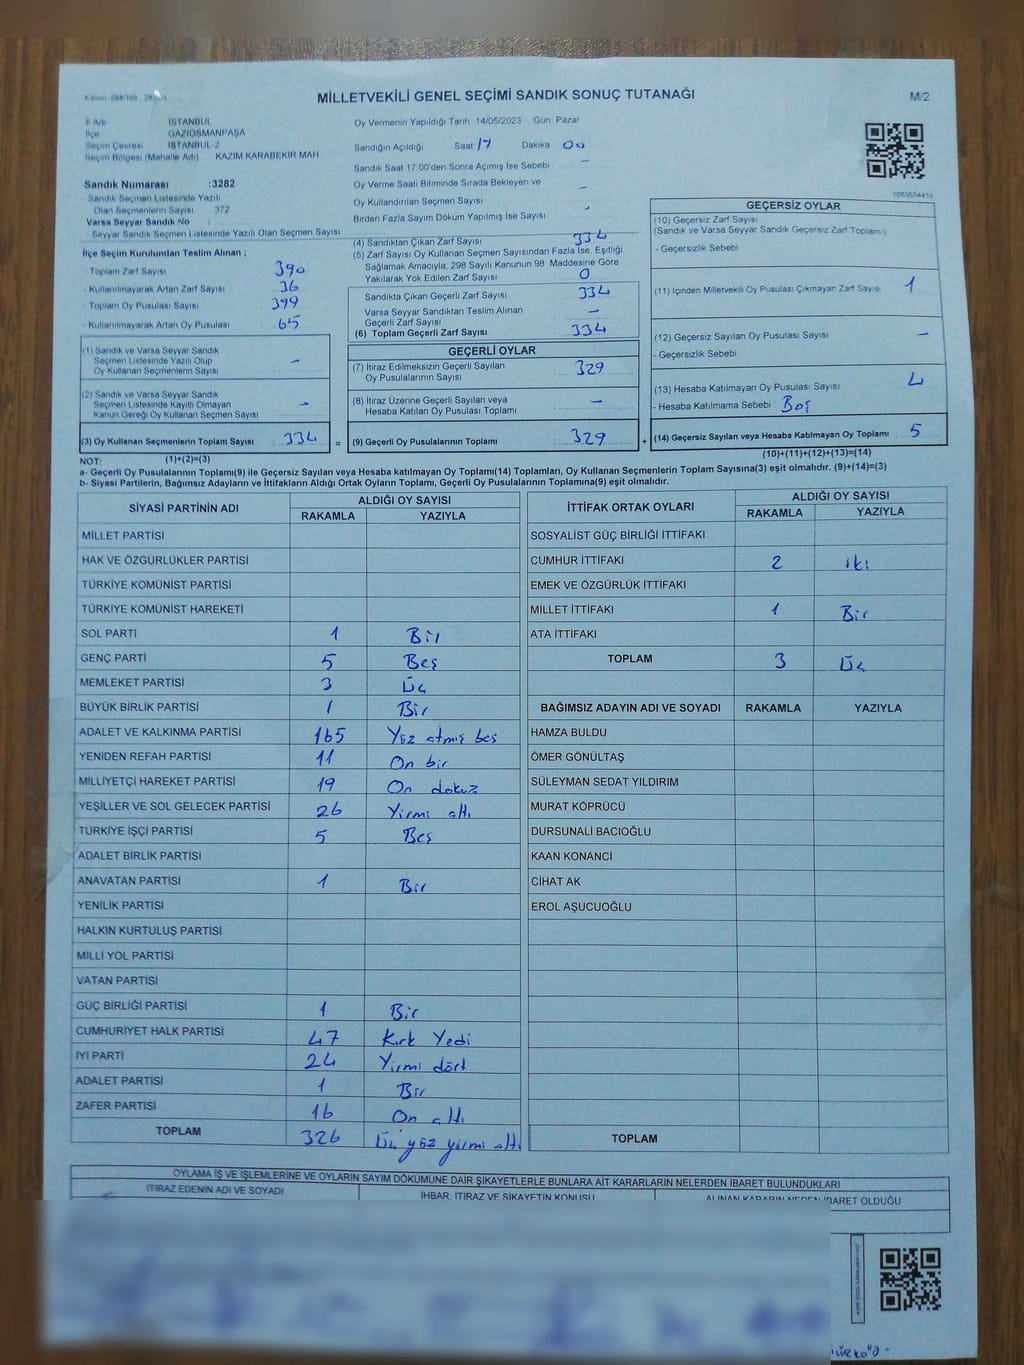 MİLLETVEKİLİ GENEL SEÇİMİ SANDIK SONUÇ TUTANAĞI
M/2
İl Adı İSTANBUL
İlçe GAZİOSMANPAŞA
Seçim Çevresi İSTANBUL-2
Seçim Bölgesi (Mahalle Adı) KAZIM KARABEKİR MAH
Sandık Numarası :3282
Sandık Seçmen Listesinde Yazılı
Olan Seçmenlerin Sayısı 372
Varsa Seyyar Sandık No :
Seyyar Sandık Seçmen Listesinde Yazılı Olan Seçmen Sayısı
İlçe Seçim Kurulundan Teslim Alınan ;
- Toplam Zarf Sayısı 390
- Kullanılmayarak Artan Zarf Sayısı 36
- Toplam Oy Pusulası Sayısı 399
- Kullanılmayarak Artan Oy Pusulası 65
(1) Sandık ve Varsa Seyyar Sandık
Seçmen Listesinde Yazılı Olup
Oy Kullanan Seçmenlerin Sayısı -
(2) Sandık ve Varsa Seyyar Sandık
Seçmen Listesinde Kayıtlı Olmayan
Kanun Gereği Oy Kullanan Seçmen Sayısı -
(3) Oy Kullanan Seçmenlerin Toplam Sayısı 334 =
Oy Vermenin Yapıldığı Tarih 14/05/2023 Gün: Pazar
Sandığın Açıldığı Saat 17 Dakika 00
Sandık Saat 17:00'den Sonra Açımış İse Sebebi -
Oy Verme Saati Bitiminde Sırada Bekleyen ve
Oy Kullandırılan Seçmen Sayısı -
Birden Fazla Sayım Döküm Yapılmış İse Sayısı -
(4) Sandıktan Çıkan Zarf Sayısı 334
(5) Zarf Sayısı Oy Kullanan Seçmen Sayısından Fazla İse, Eşitliği
Sağlamak Amacıyla, 298 Sayılı Kanunun 98. Maddesine Göre
Yakılarak Yok Edilen Zarf Sayısı 0
Sandıkta Çıkan Geçerli Zarf Sayısı 334
Varsa Seyyar Sandıktan Teslim Alınan
Geçerli Zarf Sayısı -
(6) Toplam Geçerli Zarf Sayısı 334
GEÇERLİ OYLAR
(7) İtiraz Edilmeksizin Geçerli Sayılan
Oy Pusulalarının Sayısı 329
(8) İtiraz Üzerine Geçerli Sayılan veya
Hesaba Katılan Oy Pusulası Toplamı -
(9) Geçerli Oy Pusulalarının Toplamı 329 +
1083554416
GEÇERSİZ OYLAR
(10) Geçersiz Zarf Sayısı
(Sandık ve Varsa Seyyar Sandık Geçersiz Zarf Toplamı)
- Geçersizlik Sebebi
(11) İçinden Milletvekili Oy Pusulası Çıkmayan Zarf Sayısı 1
(12) Geçersiz Sayılan Oy Pusulası Sayısı -
- Geçersizlik Sebebi
(13) Hesaba Katılmayan Oy Pusulası Sayısı 4
- Hesaba Katılmama Sebebi Boş
(14) Geçersiz Sayılan veya Hesaba Katılmayan Oy Toplamı 5
NOT: (1)+(2)=(3) (10)+(11)+(12)+(13)=(14)
a- Geçerli Oy Pusulalarının Toplamı(9) ile Geçersiz Sayılan veya Hesaba katılmayan Oy Toplamı(14) Toplamları, Oy Kullanan Seçmenlerin Toplam Sayısına(3) eşit olmalıdır. (9)+(14)=(3)
b- Siyasi Partilerin, Bağımsız Adayların ve İttifakların Aldığı Ortak Oyların Toplamı, Geçerli Oy Pusulalarının Toplamına(9) eşit olmalıdır.
SİYASİ PARTİNİN ADI ALDIĞI OY SAYISI
RAKAMLA YAZIYLA
MİLLET PARTİSİ
HAK VE ÖZGÜRLÜKLER PARTİSİ
TÜRKİYE KOMÜNİST PARTİSİ
TÜRKİYE KOMÜNİST HAREKETİ
SOL PARTİ 1 Bir
GENÇ PARTİ 5 Beş
MEMLEKET PARTİSİ 3 Üç
BÜYÜK BİRLİK PARTİSİ 1 Bir
ADALET VE KALKINMA PARTİSİ 165 Yüz atmış beş
YENİDEN REFAH PARTİSİ 11 On bir
MİLLİYETÇİ HAREKET PARTİSİ 19 On dokuz
YEŞİLLER VE SOL GELECEK PARTİSİ 26 Yirmi altı
TÜRKİYE İŞÇİ PARTİSİ 5 Beş
ADALET BİRLİK PARTİSİ
ANAVATAN PARTİSİ 1 Bir
YENİLİK PARTİSİ
HALKIN KURTULUŞ PARTİSİ
MİLLİ YOL PARTİSİ
VATAN PARTİSİ
GÜÇ BİRLİĞİ PARTİSİ 1 Bir
CUMHURİYET HALK PARTİSİ 47 Kırk Yedi
İYİ PARTİ 24 Yirmi dört
ADALET PARTİSİ 1 Bir
ZAFER PARTİSİ 16 On altı
TOPLAM 326 Üç yüz yirmi altı
İTTİFAK ORTAK OYLARI ALDIĞI OY SAYISI
RAKAMLA YAZIYLA
SOSYALİST GÜÇ BİRLİĞİ İTTİFAKI
CUMHUR İTTİFAKI 2 iki
EMEK VE ÖZGÜRLÜK İTTİFAKI
MİLLET İTTİFAKI 1 Bir
ATA İTTİFAKI
TOPLAM 3 Üç
BAĞIMSIZ ADAYIN ADI VE SOYADI RAKAMLA YAZIYLA
HAMZA BULDU
ÖMER GÖNÜLTAŞ
SÜLEYMAN SEDAT YILDIRIM
MURAT KÖPRÜCÜ
DURSUNALİ BACIOĞLU
KAAN KONANCİ
CİHAT AK
EROL AŞUCUOĞLU
TOPLAM
OYLAMA İŞ VE İŞLEMLERİNE VE OYLARIN SAYIM DÖKÜMÜNE DAİR ŞİKAYETLERLE BUNLARA AİT KARARLARIN NELERDEN İBARET BULUNDUKLARI
İTİRAZ EDENİN ADI VE SOYADI İHBAR, İTİRAZ VE ŞİKAYETİN KONUSU ALINAN KARARIN NEDEN İBARET OLDUĞU